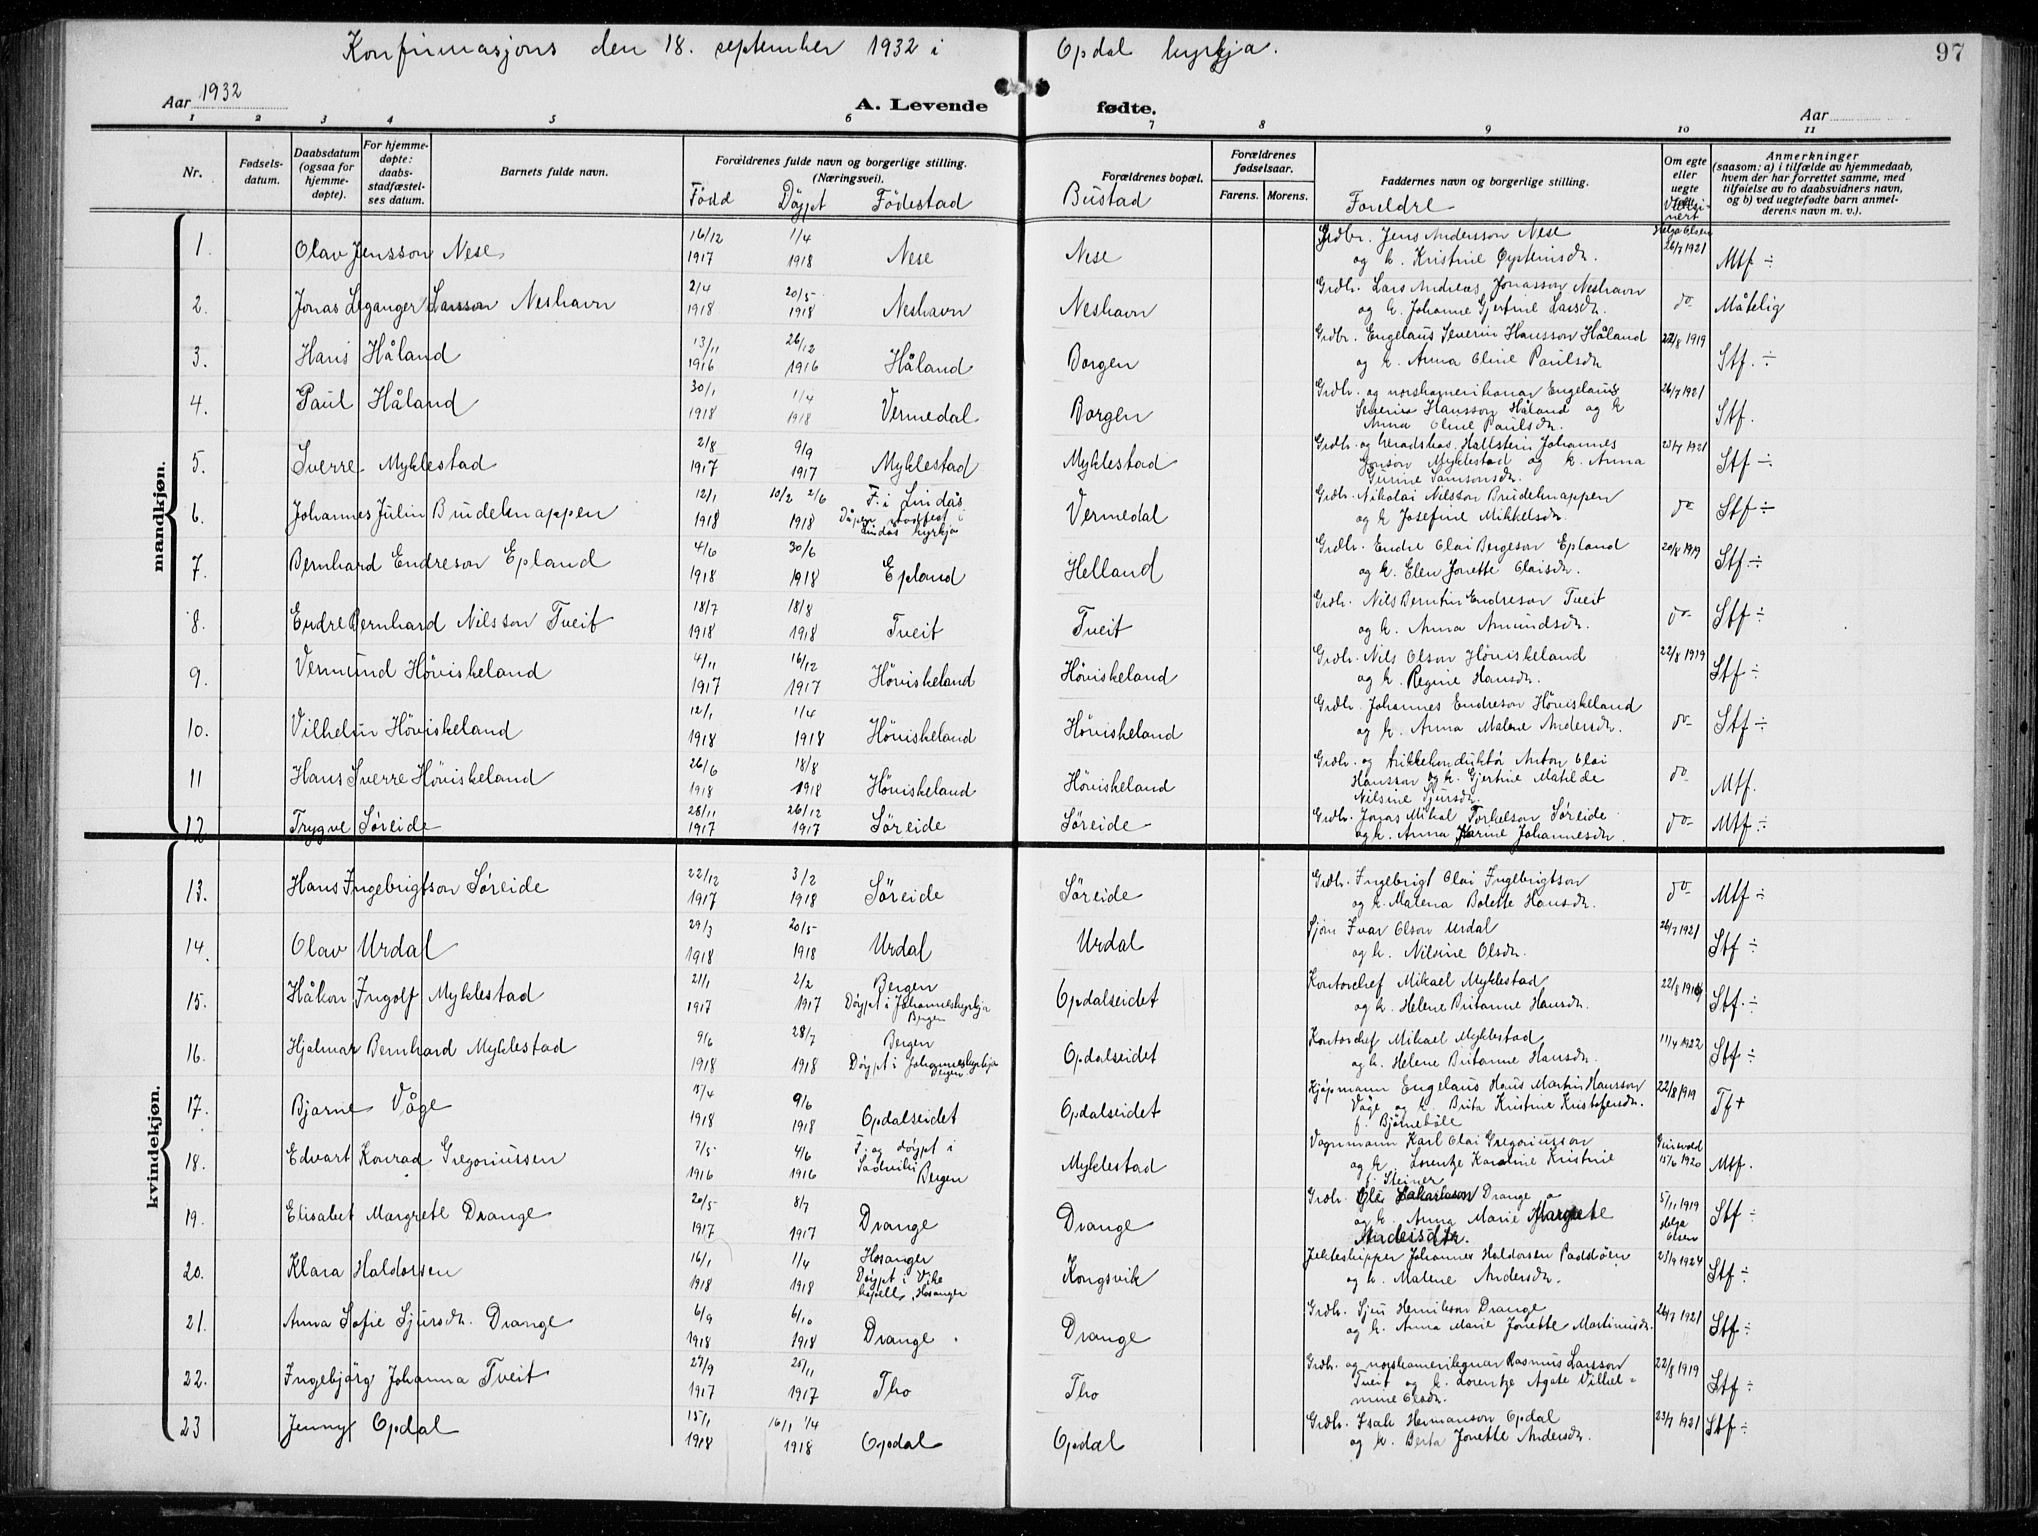 Konfirmasjons den 18. september 1932 i Opdal kyrkja.
97
Aar 1932
A. Levende fødte.
Aar
1 2 3 4 5 6 7 8 9 10 11
Nr.
Fødsels-
datum.
Daabsdatum
(ogsaa for
hjemme-
døpte).
For hjemme-
døpte:
daabs-
stadfæstel-
ses datum.
Barnets fulde navn.
Forældrenes fulde navn og borgerlige stilling.
(Næringsvei).
Forældrenes bopæl.
Forældrenes
fødselsaar.
Farens. Morens.
Faddernes navn og borgerlige stilling.
Om egte
eller
uegte
Anmerkninger
(saasom: a) i tilfælde av hjemmedaab,
hvem der har forrettet samme, med
tilføielse av to daabsvidners navn,
og b) ved uegtefødte barn anmel-
derens navn m. v.).
Fødd Döypt Födestad Bustad Foreldre
mandkjøn.
1. Olav Jensson Nese 16/12 1917 1/4 1918 Nese Nese
Grdbr. Jens Andersson Nese
og k. Kristine Øysteinsdr.
Helga Olsen
26/7 1921 Mtf ÷
2. Jonas Leganger Larsson Neshavn 2/4 1918 20/5 1918 Neshavn Neshavn
Grdbr. Lars Andreas Jonasson Neshavn
og k. Johanne Gjertine Larsdr.
do Måtelig
3. Hans Håland 13/11 1916 26/12 1916 Håland Borgen
Grdbr. Engelaus Severin Hansson Håland
og k. Anna Oline Paulsdr.
22/8 1919 Stf. ÷
4. Paul Håland 30/1 1918 1/4 1918 Vermedal Borgen
Grdbr. og norskamerikanar Engelaus
Severin Hansson Håland og k
Anna Oline Paulsdr.
26/7 1921 Stf.
5. Sverre Myklestad 2/8 1917 9/9 1917 Myklestad Myklestad
Grdbr. og heradskas. Hallstein Johannes
Jonson Myklestad og k. Anna
Gurine Samsonsdr.
23/7 1921 Stf ÷
6. Johannes Julin Brudeknappen 12/1 1918 10/2 2/6 1918 F. i Lindås
Dåpen stadfest i
Lindås kyrkja
Vermedal
Grdbr. Nikolai Nilsson Brudeknappen
og k Josefine Mikkelsdr.
do Stf ÷
7. Bernhard Endreson Epland 4/6 1918 30/6 1918 Epland Helland
Grdbr. Endre Olai Bergeson Epland
og k. Elen Jonette Olaisdr.
20/8 1919 Stf ÷
8. Endre Bernhard Nilsson Tveit 18/7 1918 18/8 1918 Tveit Tveit
Grdbr. Nils Berntin Endreson Tveit
og k. Anna Amundsdr.
do Stf ÷
9. Vermund Høviskeland 4/11 1917 16/12 1917 Høviskeland Høviskeland
Grdbr. Nils Olson Høviskeland
og k. Regine Hansdr.
22/8 1919 Stf ÷
10. Vilhelm Høviskeland 12/1 1918 1/4 1918 Høviskeland Høviskeland
Grdbr. Johannes Endreson Høviskeland
og k. Anna Malene Andersdr.
do Stf ÷
11 Hans Sverre Høviskeland 26/6 1918 18/8 1918 Høviskeland Høviskeland
Grdbr. og trikkekonduktør Anton Olai
Hansson og k. Gjertine Matilde
Nilsine Sjursdr.
do Mtf.
12 Trygve Søreide 28/11 1917 26/12 1917 Søreide Søreide
Grdbr. Jonas Mikal Torkelson Søreide
og k. Anna Karine Johannesdr.
do Mtf ÷
kvindekjøn.
13. Hans Ingebrigtson Søreide 22/12 1917 3/2 1918 Søreide Søreide
Grdbr. Ingebrigt Olai Ingebrigtson
og k. Malena Bolette Hansdr.
do Mtf ÷
14. Olav Urdal 29/3 1918 20/5 1918 Urdal Urdal
Sjøm Ivar Olson Urdal
og k. Nilsine Olsdr.
26/7 1921 Stf ÷
15. Håkon Ingolf Myklestad 21/1 1917 2/2 1917 Bergen
Døypt i Johanneskyrkja
Bergen
Opdalseidet
Kontorchef Mikael Myklestad
og k. Helene Britanne Hansdr.
22/8 1919 Stf. ÷
16. Hjalmar Bernhard Myklestad 9/6 1918 28/7 1918 Bergen
Døypt i Johanneskyrkja
Bergen
Opdalseidet
Kontorchef Mikael Myklestad
og k. Helene Britanne Hansdr.
11/4 1922 Stf ÷
17. Bjarne Våge 15/4 1918 9/6 1918 Opdalseidet Opdalseidet
Kjöpmann Engelaus Hans Martin Hansson
Våge og k. Brita Kristine Kristofersdr.
f. Bjørnebøle
22/8 1919 Tf+
18. Edvart Konrad Gregoriussen 7/5 1916 4/6 1916 F. og döypt i
Sadviki
Bergen
Myklestad
Vognmann Karl Olai Gregoriusson
og k. Lorentze Karoline Kristine
f. Steiner
15/6 1920 Mtf.
19. Elisabet Margrete Drange 20/5 1917 8/7 1917 Drange Drange
Grdbr. Ole Zakariasson Drange
og k. Anna Marie Margrete
Andersdtr.
5/11 1919
Helga
Olsen
Stf ÷
20. Klara Haldorsen 16/1 1918 1/4 1918 Hosanger
Døypt i Vike
kapell, Hosanger
Kongsvik
Jekteskipper Johannes Haldorsen Paddøen
og k. Malene Andersdr.
23/9 1924 Stf ÷
21. Anna Sofie Sjursdr. Drange 6/9 1918 6/10 1918 Drange Drange
Grdbr. Sjur Henrikson Drange
og k. Anna Marie Jonette Martinusdr.
26/7 1921 Stf ÷
22. Ingebjörg Johanna Tveit 27/9 1917 25/11 1917 Tho Tho
Grdbr. og norskamerikanar Rasmus Larsson
Tveit og k. Lorentze Agate Vilhel-
mine Olsdr.
22/8 1919 Stf ÷
23 Jenny Opdal 15/1 1918 16/1 1/4 1918 Opdal Opdal
Grdbr. Isak Hermanson Opdal
og k. Berta Jonette Andersdr.
23/7 1921 Stf ÷